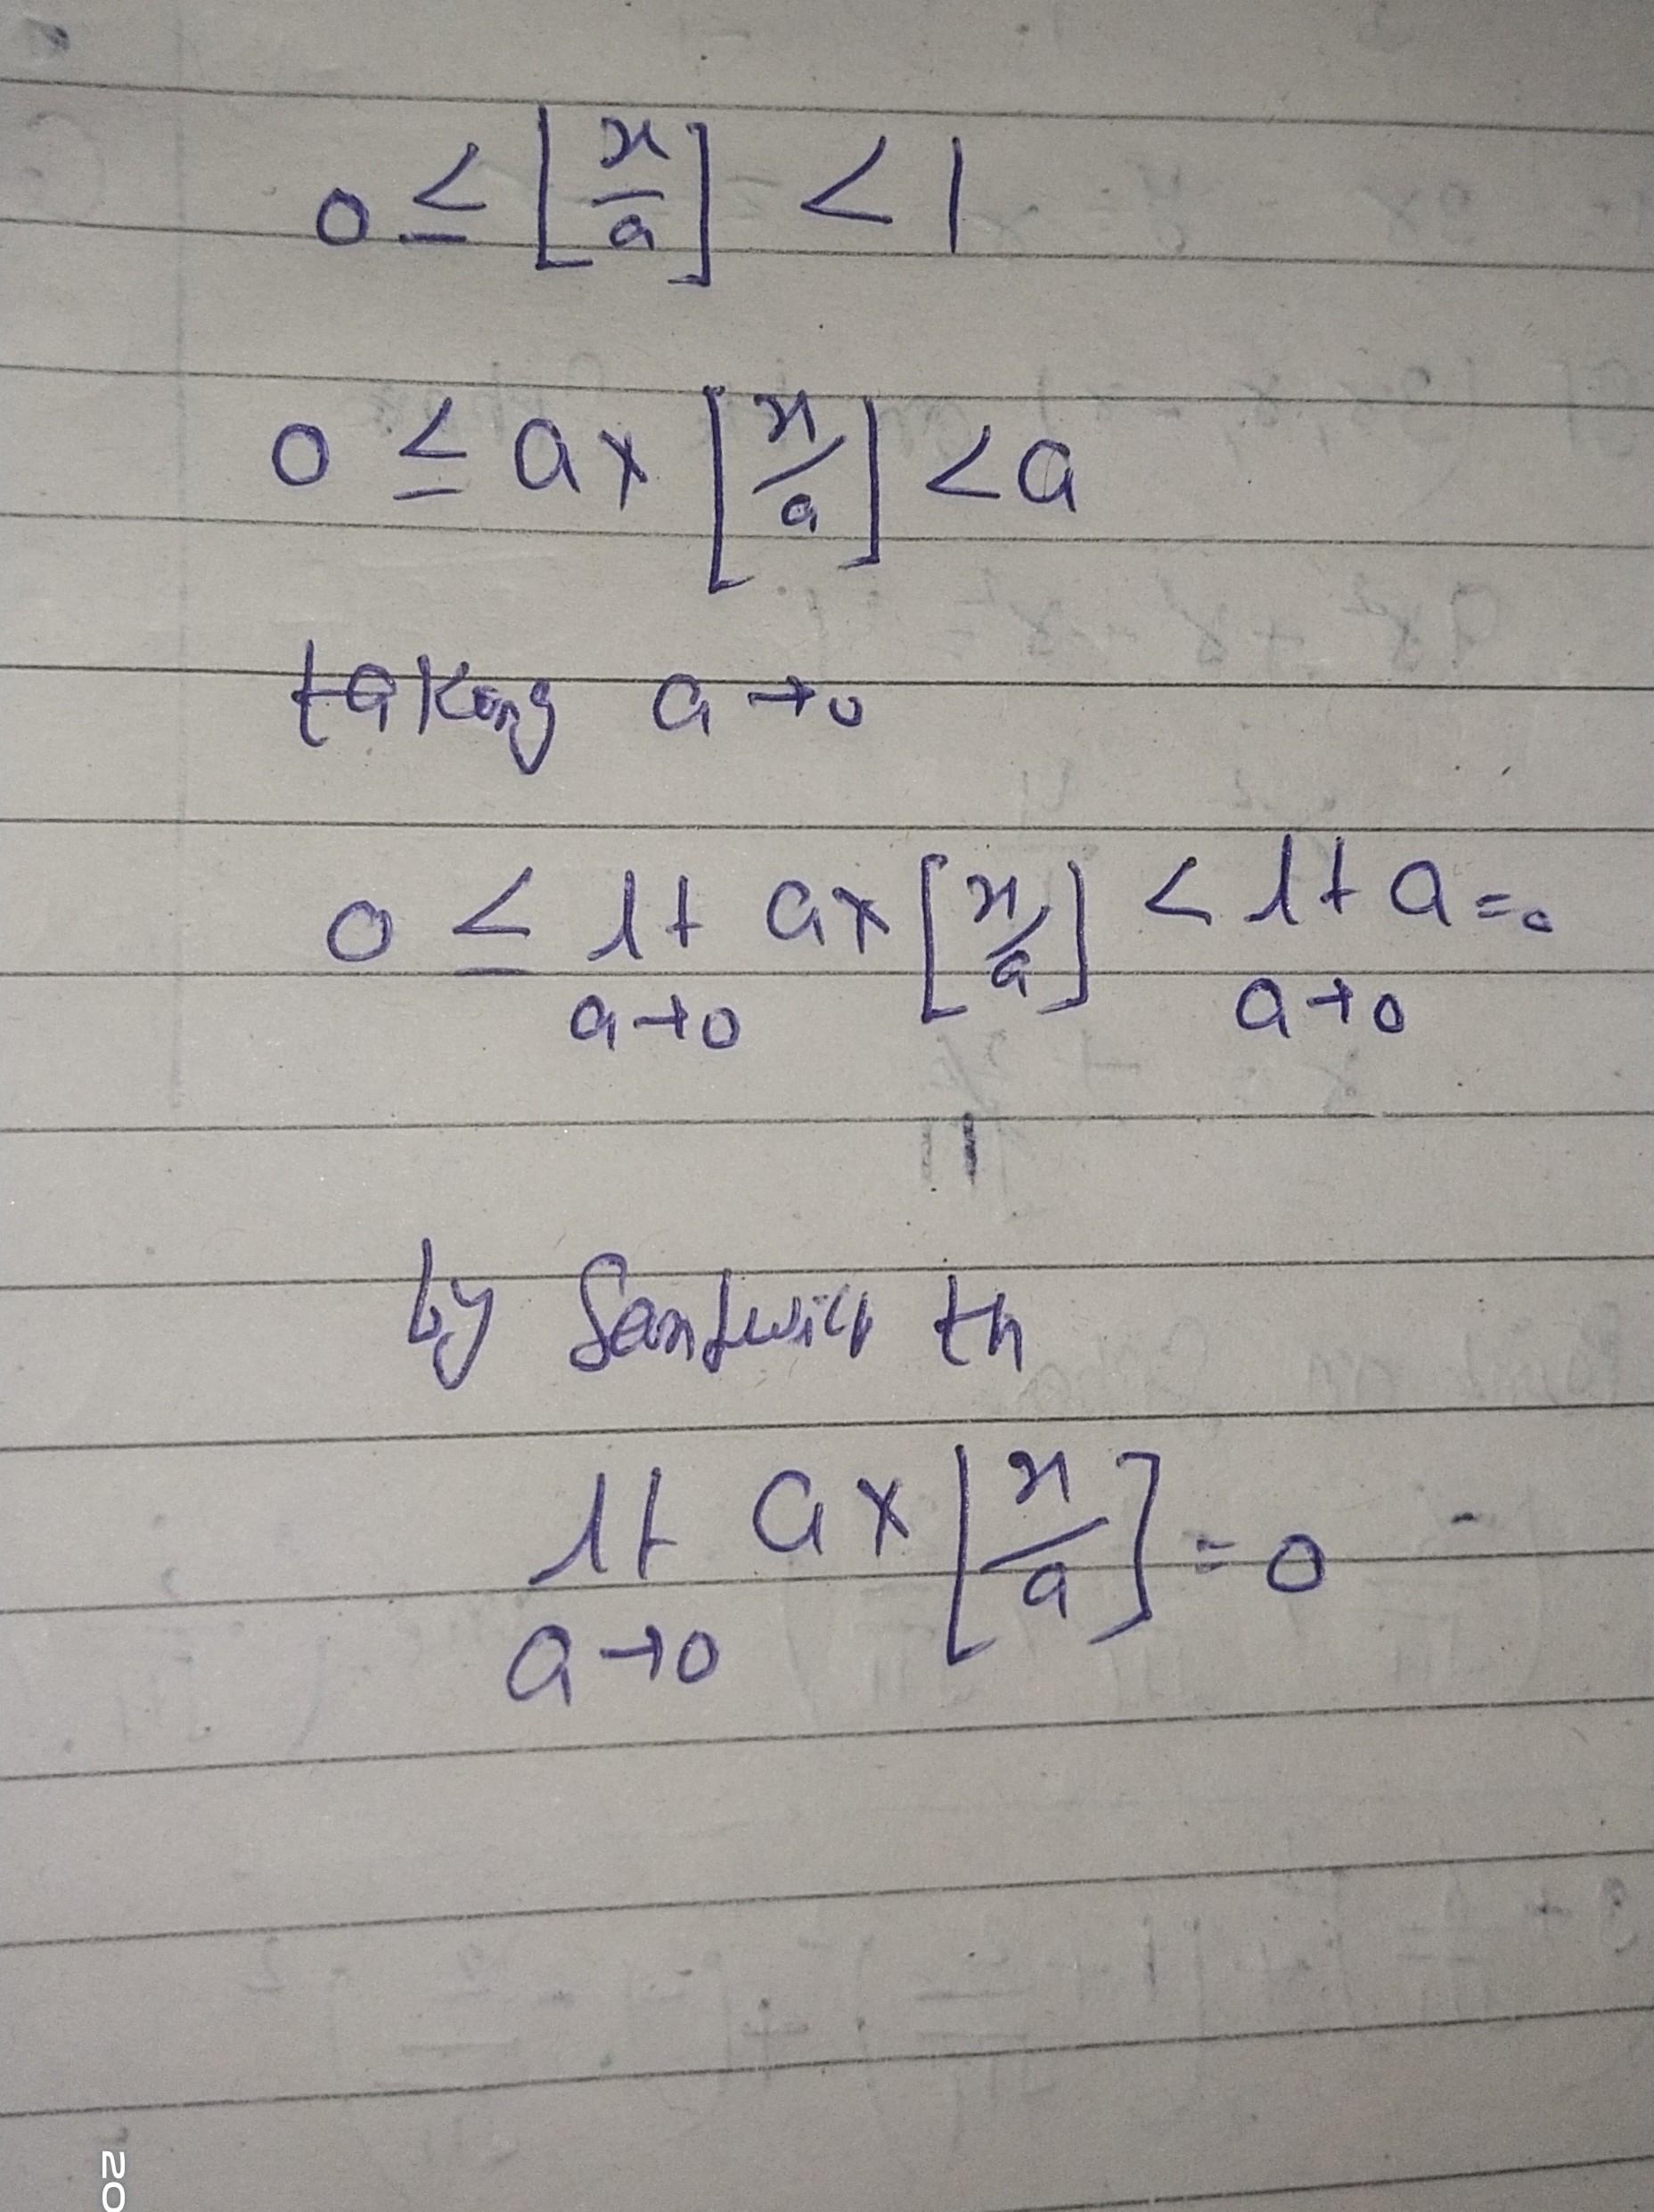 0 ≤ [x/a] < 1
0 ≤ a × [x/a] < a
taking a → 0
0 ≤ lt a × [x/a] < lt a = 0
a → 0 a → 0
by Sandwich th
lt a × [x/a] = 0
a → 0
20